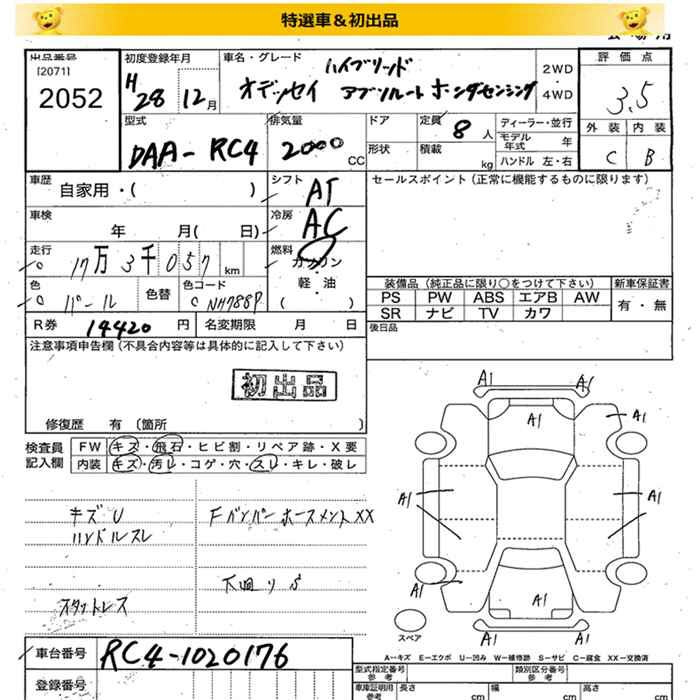 特選車＆初出品
出品番号
[2071]
2052
初度登録年月
H28 12月
車名・グレード
ハイブリッド
オデッセイ アブソルート ホンダセンシング
2WD
4WD
評価点
3.5
外装 内装
C B
型式
DAA-RC4
排気量
2000 CC
ドア
形状
定員 8 人
積載 kg
ディーラー・並行
モデル年式 年
ハンドル 左・右
車歴
自家用・( )
シフト
AT
車検
年 月( 日)
冷房
AC
走行
17万3千057 km
燃料
ガソリン
軽油
( )
色
パール
色替
色コード
NH788P
R券 14420 円
名変期限 月 日
セールスポイント (正常に機能するものに限ります)
装備品 (純正品に限り○をつけて下さい)
PS PW ABS エアB AW
SR ナビ TV カワ
新車保証書
有・無
後日品
注意事項申告欄 (不具合内容等は具体的に記入して下さい)
初出品
修復歴 有 〔箇所 〕
検査員記入欄
FW キズ・飛石・ヒビ割・リペア跡・X要
内装 キズ・汚レ・コゲ・穴・スレ・キレ・破レ
キズU
ハンドルスレ
スタットレス
Fバンパーホースメント XX
下廻りS
A1 A1
A1 A1
A1 A1
A1 A1
A1 A1
スペア
A－キズ E－エクボ U－凹み W－補修跡 S－サビ C－腐食 XX－交換済
車台番号 RC4-1020176
登録番号
型式指定番号
参考
類別区分番号
参考
車庫証明用
参考
長さ cm
幅 cm
高さ cm